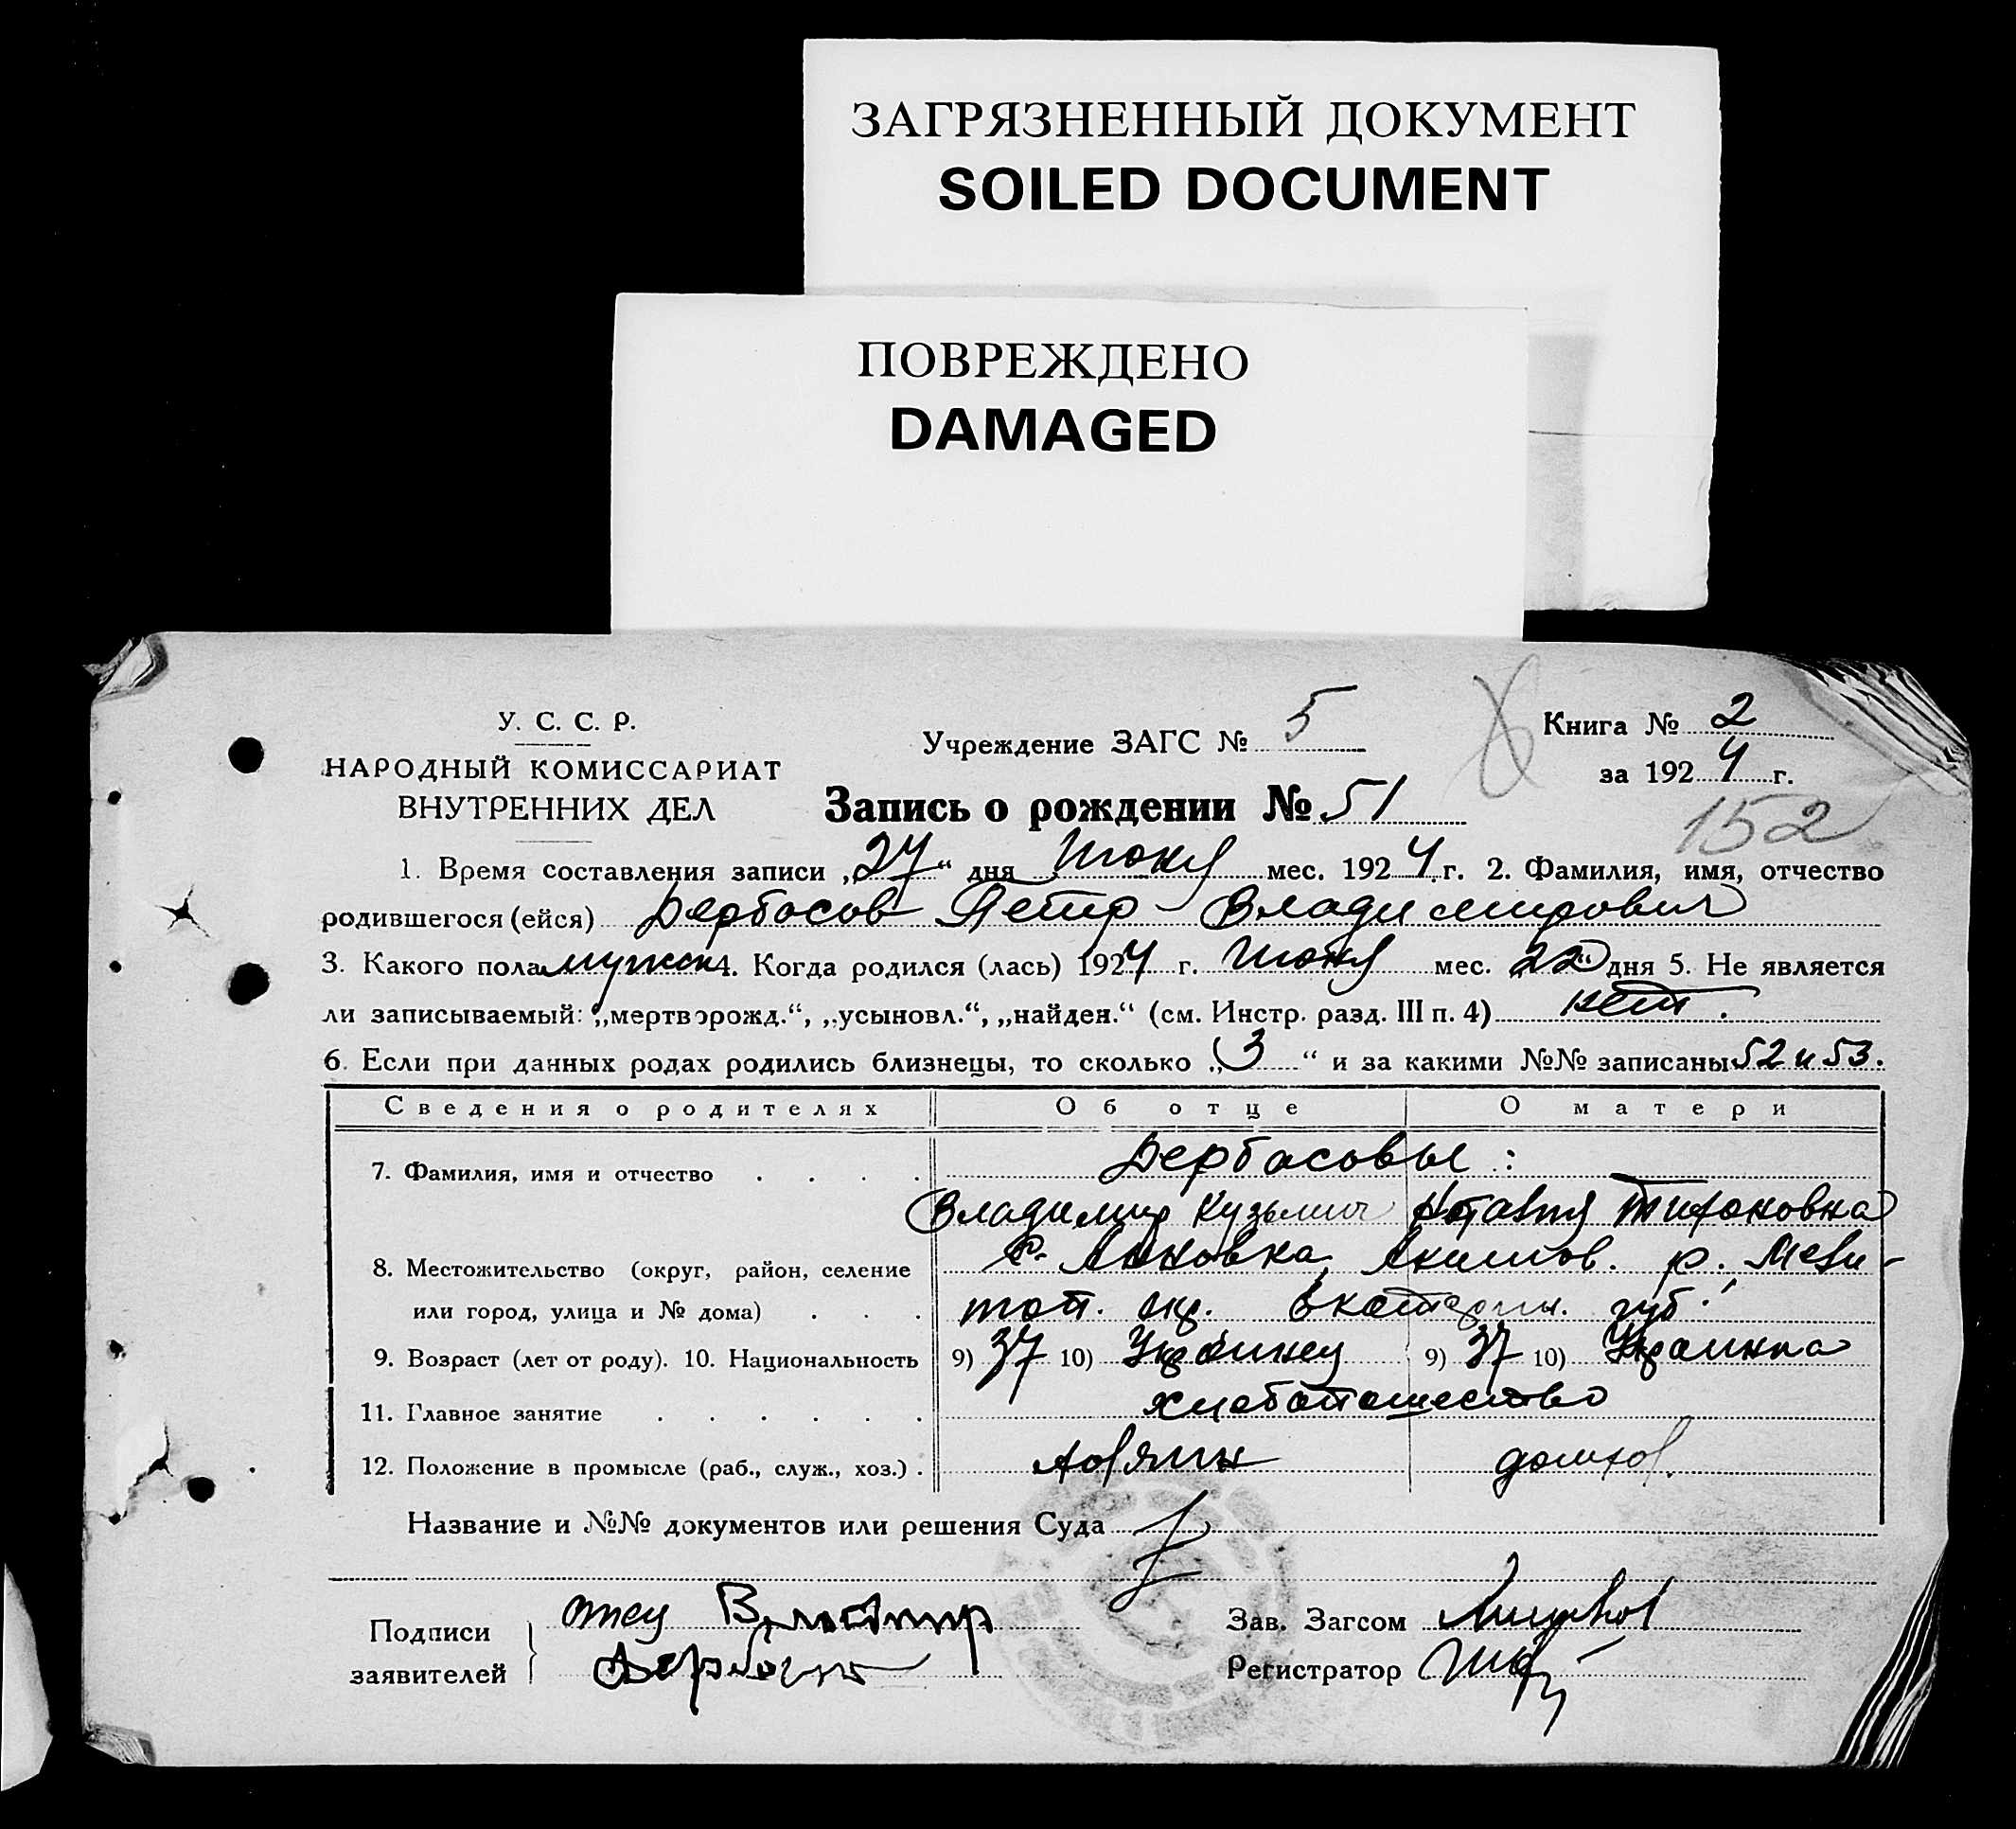 ЗАГРЯЗНЕННЫЙ ДОКУМЕНТ
SOILED DOCUMENT
ПОВРЕЖДЕНО
DAMAGED
У. С. С. Р.
НАРОДНЫЙ КОМИССАРИАТ
ВНУТРЕННИХ ДЕЛ
Учреждение ЗАГС № 5
Книга № 2
за 1924 г.
152
Запись о рождении № 51
1. Время составления записи „27“ дня Июня мес. 1924 г. 2. Фамилия, имя, отчество
родившегося (ейся) Дербасов Петр Владимирович
3. Какого пола мужск 4. Когда родился (лась) 1924 г. Июня мес. „22“ дня 5. Не является
ли записываемый: „мертворожд.“, „усыновл.“, „найден.“ (см. Инстр. разд. III п. 4) нет.
6. Если при данных родах родились близнецы, то сколько „3“ и за какими №№ записаны 52 и 53.
Сведения о родителях Об отце О матери
7. Фамилия, имя и отчество Дербасовы:
Владимир Кузьмич Наталия Тихоновна
8. Местожительство (округ, район, селение с. Анновка, Акимов. р., Мели-
или город, улица и № дома) топ. окр. Екатерин. губ.
9. Возраст (лет от роду). 10. Национальность 9) 37 10) Украинец 9) 37 10) Украинка
11. Главное занятие хлебопашество
12. Положение в промысле (раб., служ., хоз.) хозяин домхоз.
Название и №№ документов или решения Суда
Подписи заявителей отец Владимир
Дербасов
Зав. Загсом
Регистратор